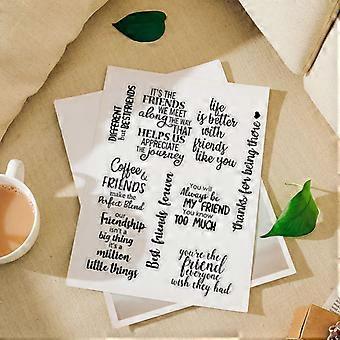 DIFFERENT
but BESTFRIENDS
IT'S THE
FRIENDS
WE MEET
along THE WAY
THAT
HELPS US
APPRECIATE
THE journey
life
is better
with
friends
like you
thanks for being there
Coffee &
FRIENDS
make the
Perfect Blend
our
Friendship
isn't a
big thing
it's a
million
little things
Best friends forever
You will
Always be
MY FRIEND
You know
TOO MUCH
you're the
friend
everyone
wish they had